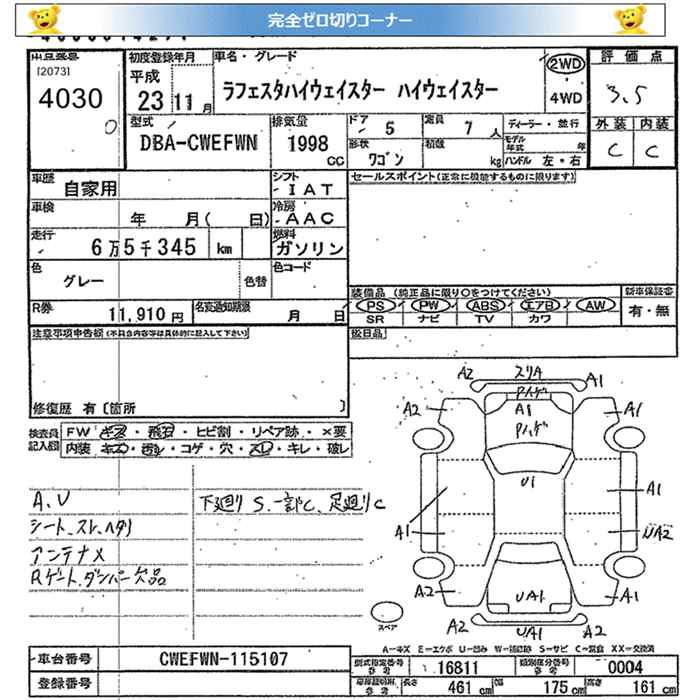 完全ゼロ切りコーナー
[2073]
4030
初度登録年月
平成
23 11 月
車名・グレード
ラフェスタハイウェイスター ハイウェイスター
2WD
4WD
評価点
3.5
外装 内装
C C
型式
DBA-CWEFWN
排気量
1998
CC
ドア
5
定員
7 人
形状
ワゴン
積載
kg
ディーラー・並行
モデル年式 年
ハンドル 左・右
車歴
自家用
シフト
IAT
セールスポイント(正常に機能するものに限ります)
車検
年 月( 日)
冷房
AAC
走行
6万5千345 km
燃料
ガソリン
色
グレー
色替
色コード
装備品 (純正品に限り○をつけてください)
新車保証書
有・無
PS PW ABS エアB AW
SR ナビ TV カワ
R券
11,910 円
名変通知期限
月 日
後日品
注意事項申告欄(不具合内容等は具体的に記入して下さい)
修復歴 有〔箇所 〕
検査員記入欄
FW キズ・飛石・ヒビ割・リペア跡・×要
内装 キズ・汚レ・コゲ・穴・スレ・キレ・破レ
A.V
シート、スレ、ヘタリ
アンテナX
Rゲート、ダンパー欠品
下廻り S、一部C、足廻りC
A2 スリA A1
Pハゲ
A2 A1 A1
Pハゲ
U1
A1 A1
UA2
A2 UA1 A1
A2 UA1 A2
スペア
A=キズ E=エクボ U=凹み W=補修跡 S=サビ C=腐食 XX=交換済
車台番号
CWEFWN-115107
登録番号
型式指定番号 参考
16811
類別区分番号 参考
0004
参考
長さ 461 cm
幅 175 cm
高さ 161 cm